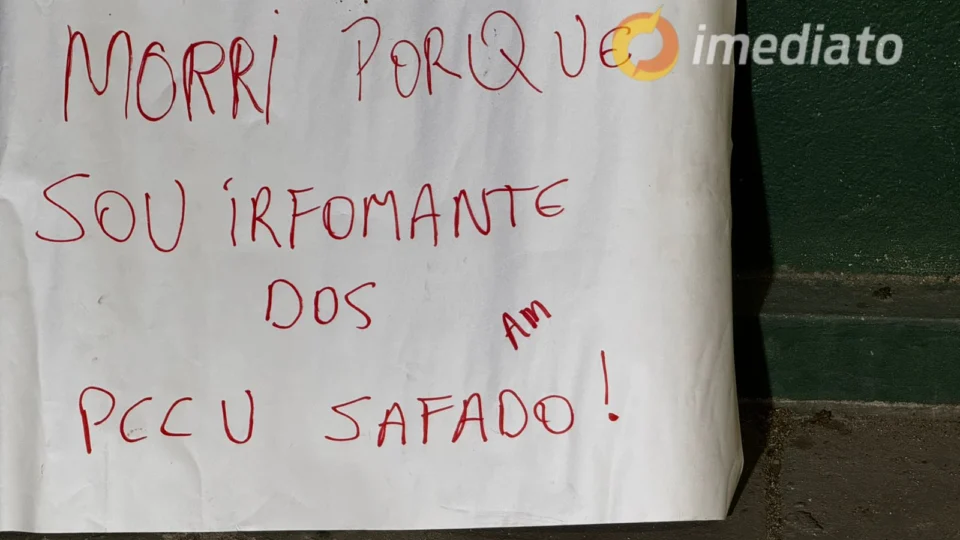 MORRI PORQUE
imediato
SOU IRFOMANTE
DOS
AM
PCCU SAFADO!